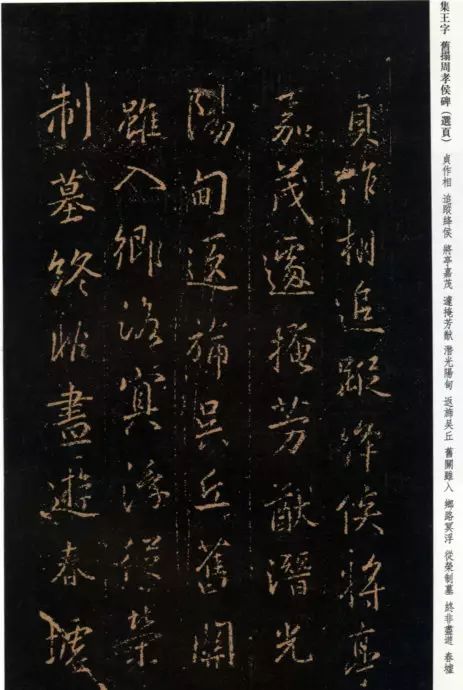 集王字 舊搨周孝侯碑（選頁） 貞作相 追蹤絳侯 將亭嘉茂 遽掩芳猷 潛光陽甸 返旆吳丘 舊關雖入 鄉路冥浮 從榮制墓 終非盡遊 春墟
貞作相追蹤絳侯將亭
嘉茂遽掩芳猷潛光
陽甸返旆吳丘舊關
雖入鄉路冥浮從榮
制墓終非盡遊春墟